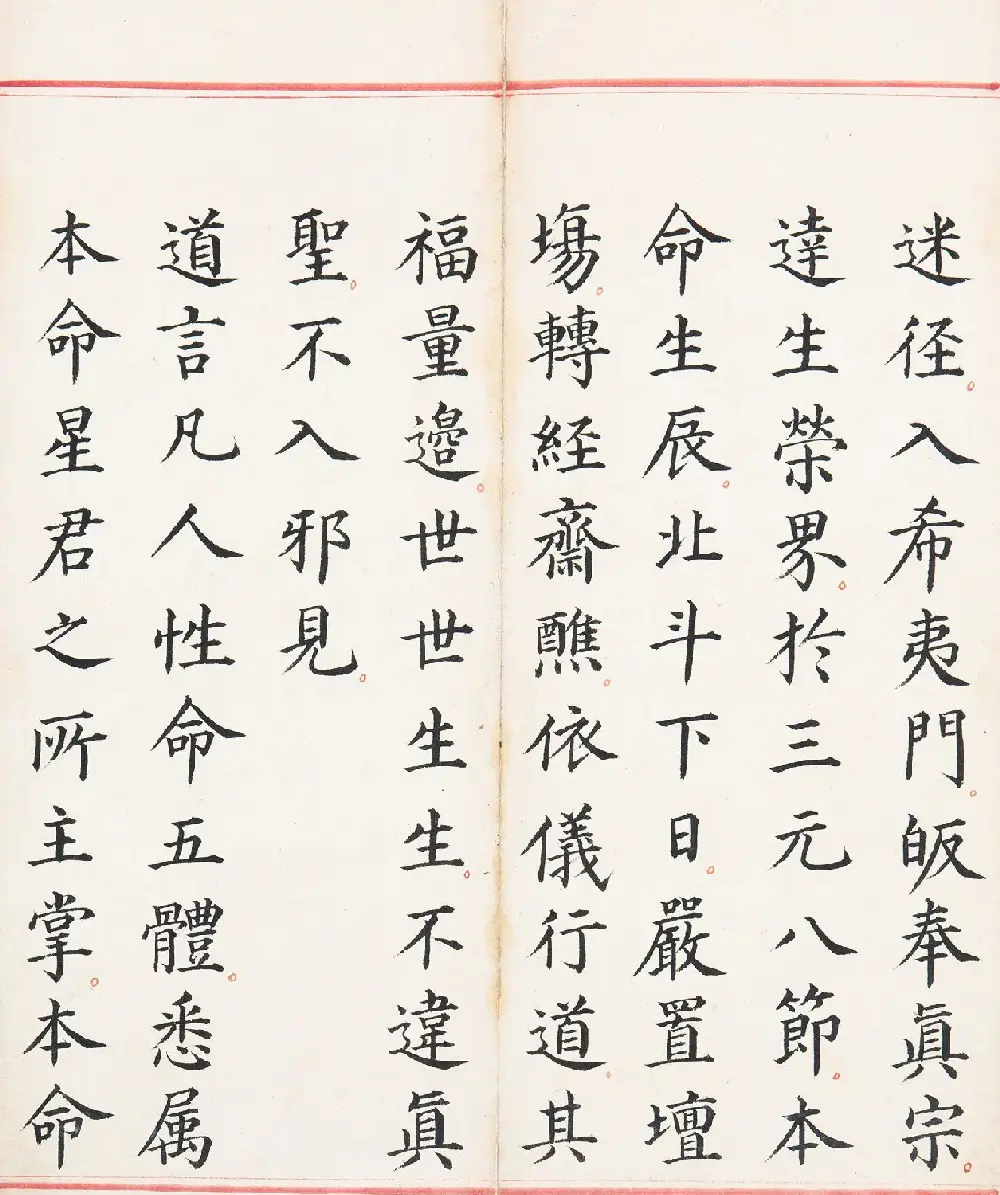 迷径。入希夷門。皈奉眞宗。
達生榮界。於三元八節。本
命生辰。北斗下日。嚴置壇
塲。轉経齋醮。依儀行道。其
福量邉。世世生生。不違眞
聖。不入邪見。
道言凡人性命五體。悉属
本命星君之所主掌。本命